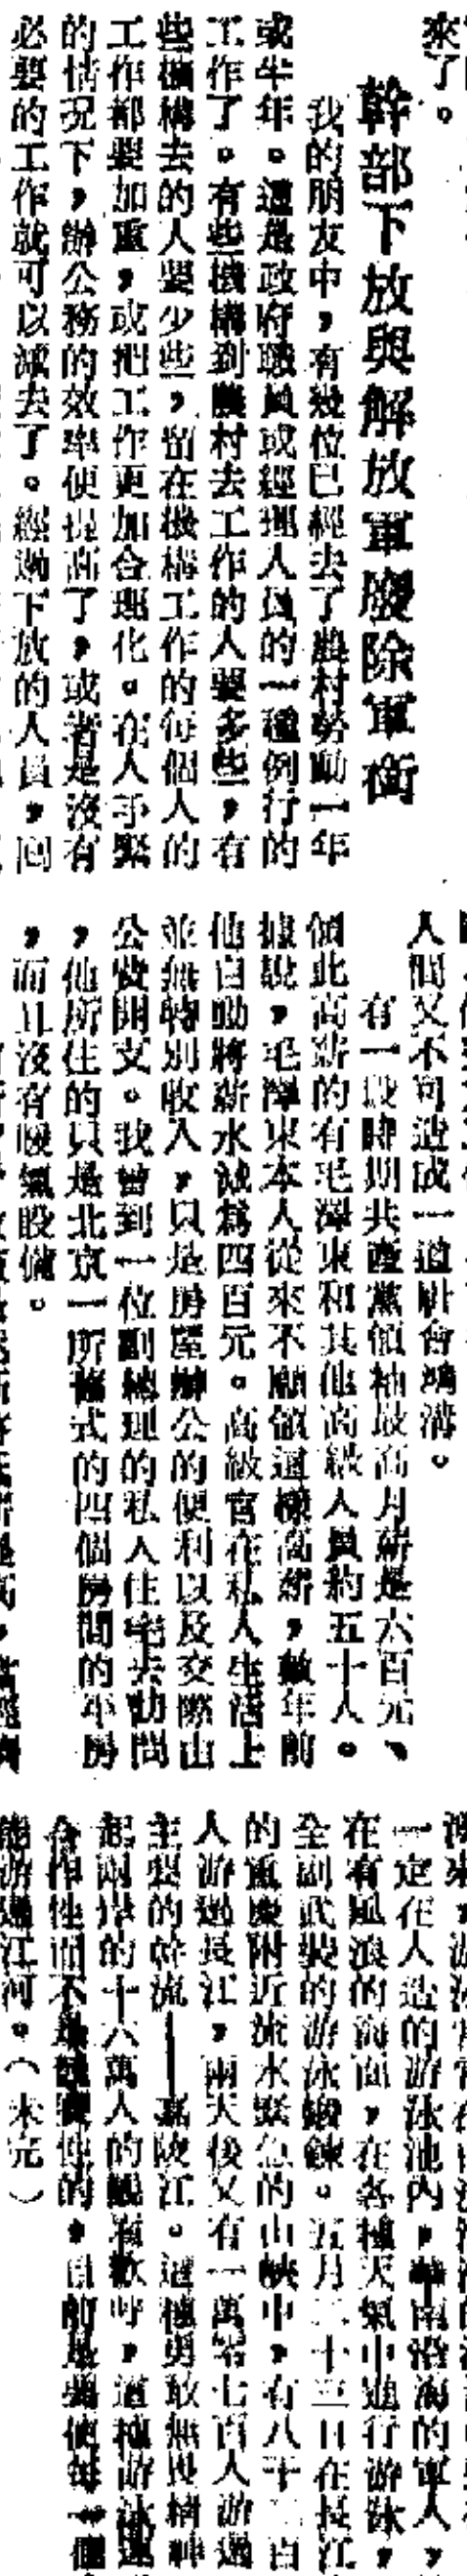 來了。
幹部下放與解放軍廢除軍銜
我的朋友中，有幾位已經去了農村勞動一年
或半年。這是政府職員或經理人員的一種例行的
工作了。有些機構到農村去工作的人要多些，有
些機構去的人要少些，留在機構工作的每個人的
工作都要加重，或把工作更加合理化。在人手緊
的情況下，辦公務的效率便提高了，或者是沒有
必要的工作就可以減去了。經過下放的人員，回
人間又不可造成一道社會鴻溝。
有一段時期共產黨領袖最高月薪是六百元、
領此高薪的有毛澤東和其他高級人員約五十人。
據說，毛澤東本人從來不願領這樣高薪，數年前
他自動將薪水減爲四百元。高級官在私人生活上
並無特別收入，只是房屋辦公的便利以及交際由
公費開支。我曾到一位副總理的私人住宅去訪問
，他所住的只是北京一所舊式的四個房間的平房
，而且沒有暖氣設備。
一定在人造的游泳池內，華南沿海的軍人，
在有風浪的海面，在各種天氣中進行游泳，
全副武裝的游泳鍛鍊。五月二十三日在長江
的重慶附近流水緊急的山峽中，有八千二百
人游過長江，兩天後又有一萬零七百人游過
主要的幹流——嘉陵江。這種勇敢無畏精神
起兩岸的十六萬人的觀看歡呼，這種游泳運
合作性而不是競賽性的，目前是要使每一個
能游過江河。（未完）